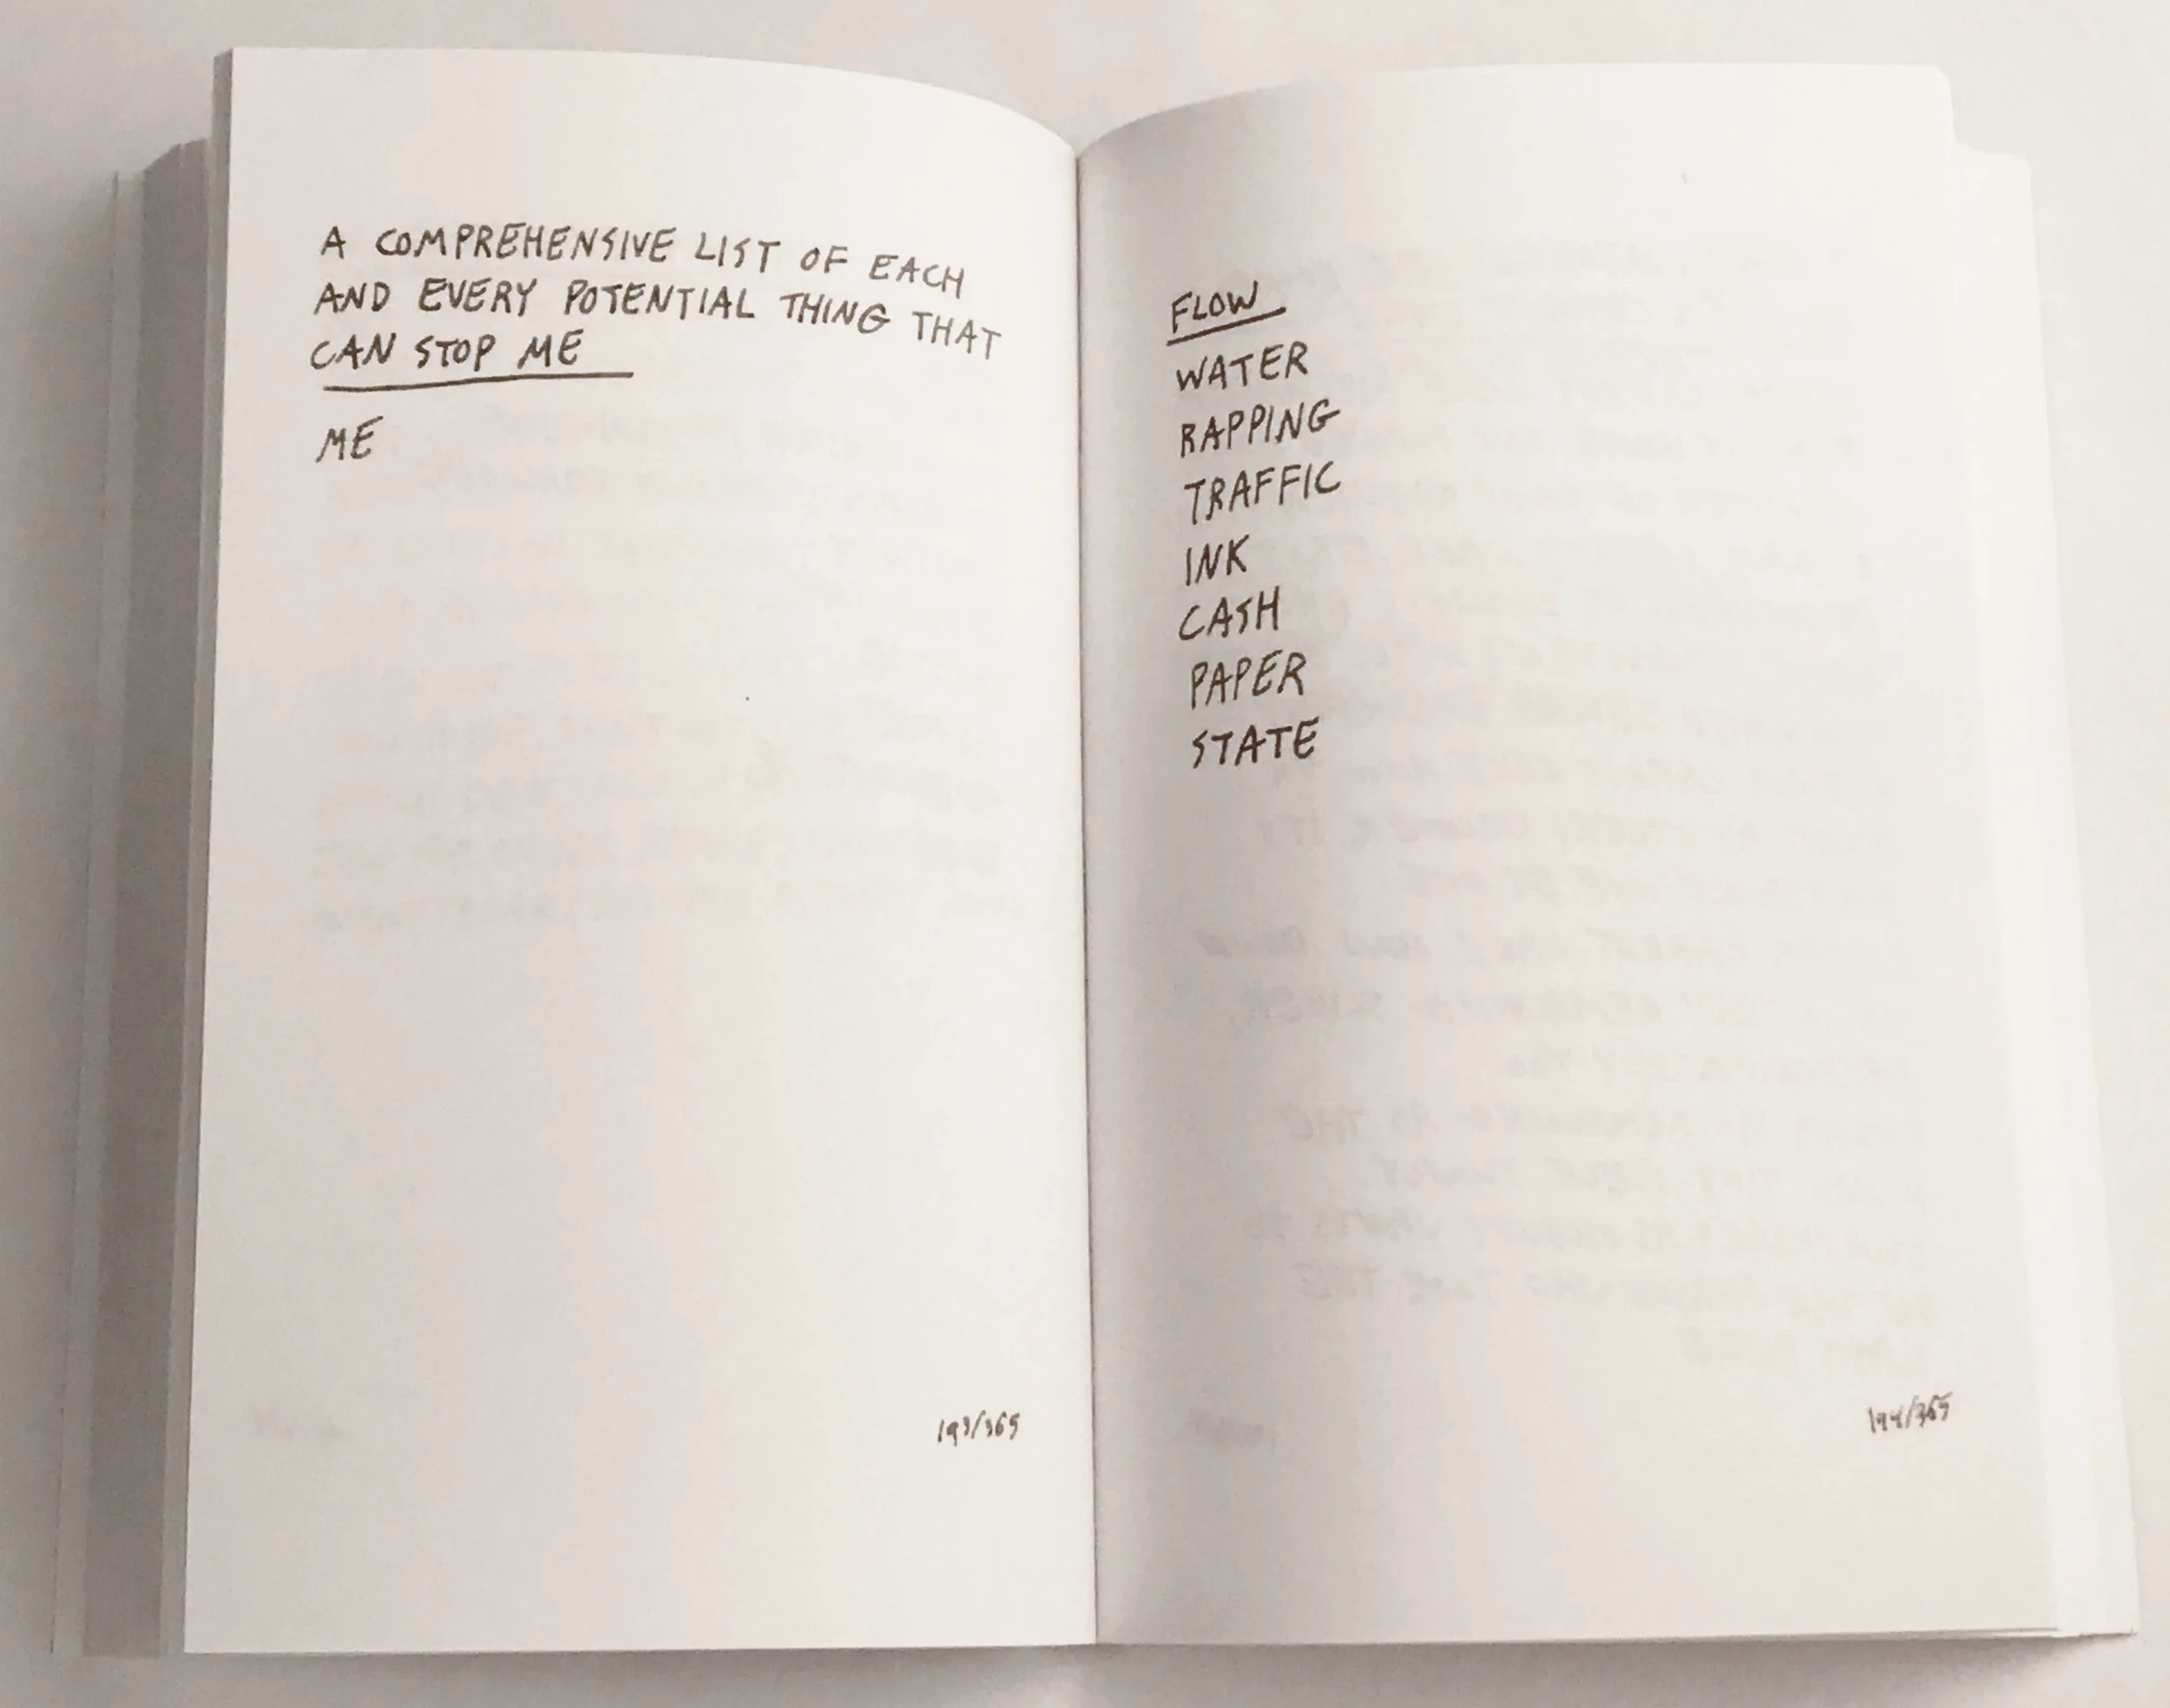 A COMPREHENSIVE LIST OF EACH
AND EVERY POTENTIAL THING THAT
CAN STOP ME
ME
193/365
FLOW
WATER
RAPPING
TRAFFIC
INK
CASH
PAPER
STATE
194/365